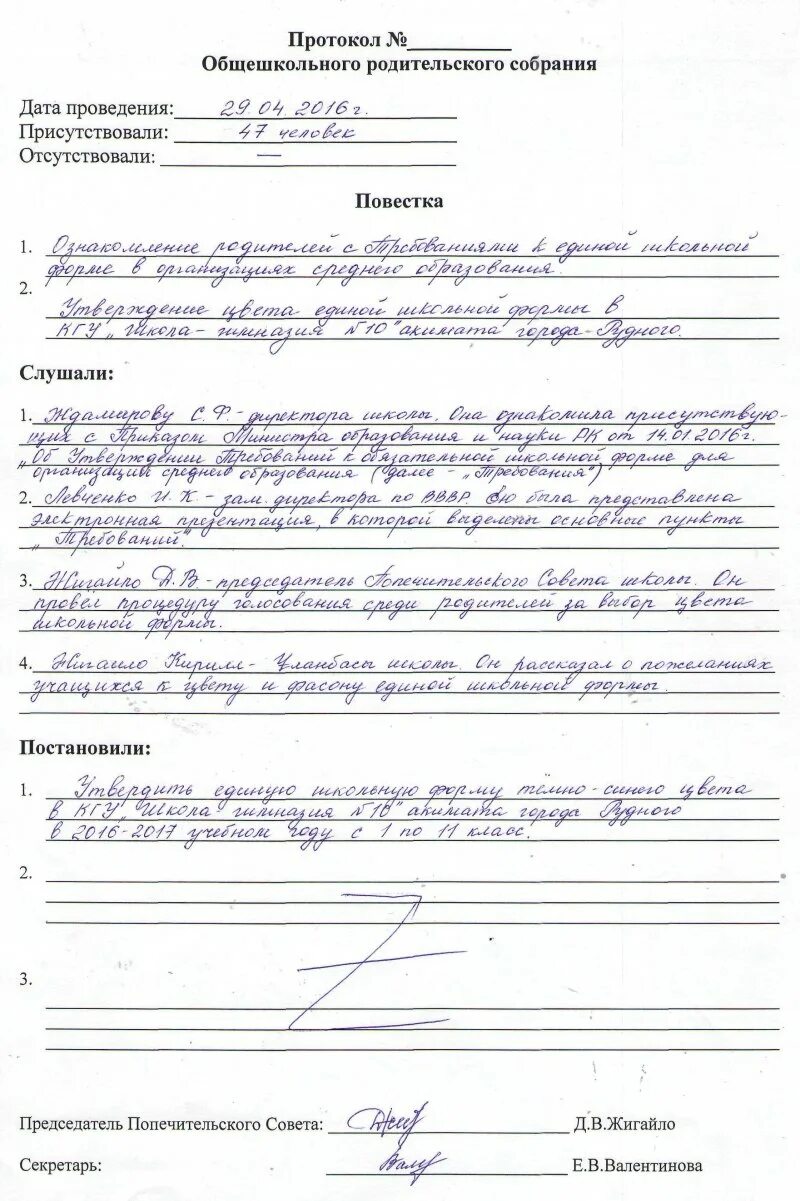 Протокол №__________
Общешкольного родительского собрания
Дата проведения: 29.04.2016г.
Присутствовали: 47 человек
Отсутствовали: —
Повестка
1. Ознакомление родителей с Требованиями к единой школьной
форме в организациях среднего образования.
2.
Утверждение цвета единой школьной формы в
КГУ „Школа-гимназия №10" акимата города Рудного.
Слушали:
1. Ждамирову С.Ф.-директора школы. Она ознакомила присутствую-
щих с Приказом Министра образования и науки РК от 14.01.2016г.
„Об Утверждении Требований к обязательной школьной форме для
организаций среднего образования (далее - „Требования")
2. Левченко И.К.- зам. директора по ВВВР. Ею была представлена
электронная презентация, в которой выделены основные пункты
„Требований".
3. Жигайло Д.В-председатель Попечительского Совета школы. Он
провёл процедуру голосования среди родителей за выбор цвета
школьной формы.
4. Жигайло Кирилл- Уланбасы школы. Он рассказал о пожеланиях
учащихся к цвету и фасону единой школьной формы.
Постановили:
1. Утвердить единую школьную форму тёмно-синего цвета
в КГУ „Школа-гимназия №10" акимата города Рудного
в 2016-2017 учебном году с 1 по 11 класс.
2.
3.
Председатель Попечительского Совета: Д.В.Жигайло
Секретарь: Е.В.Валентинова